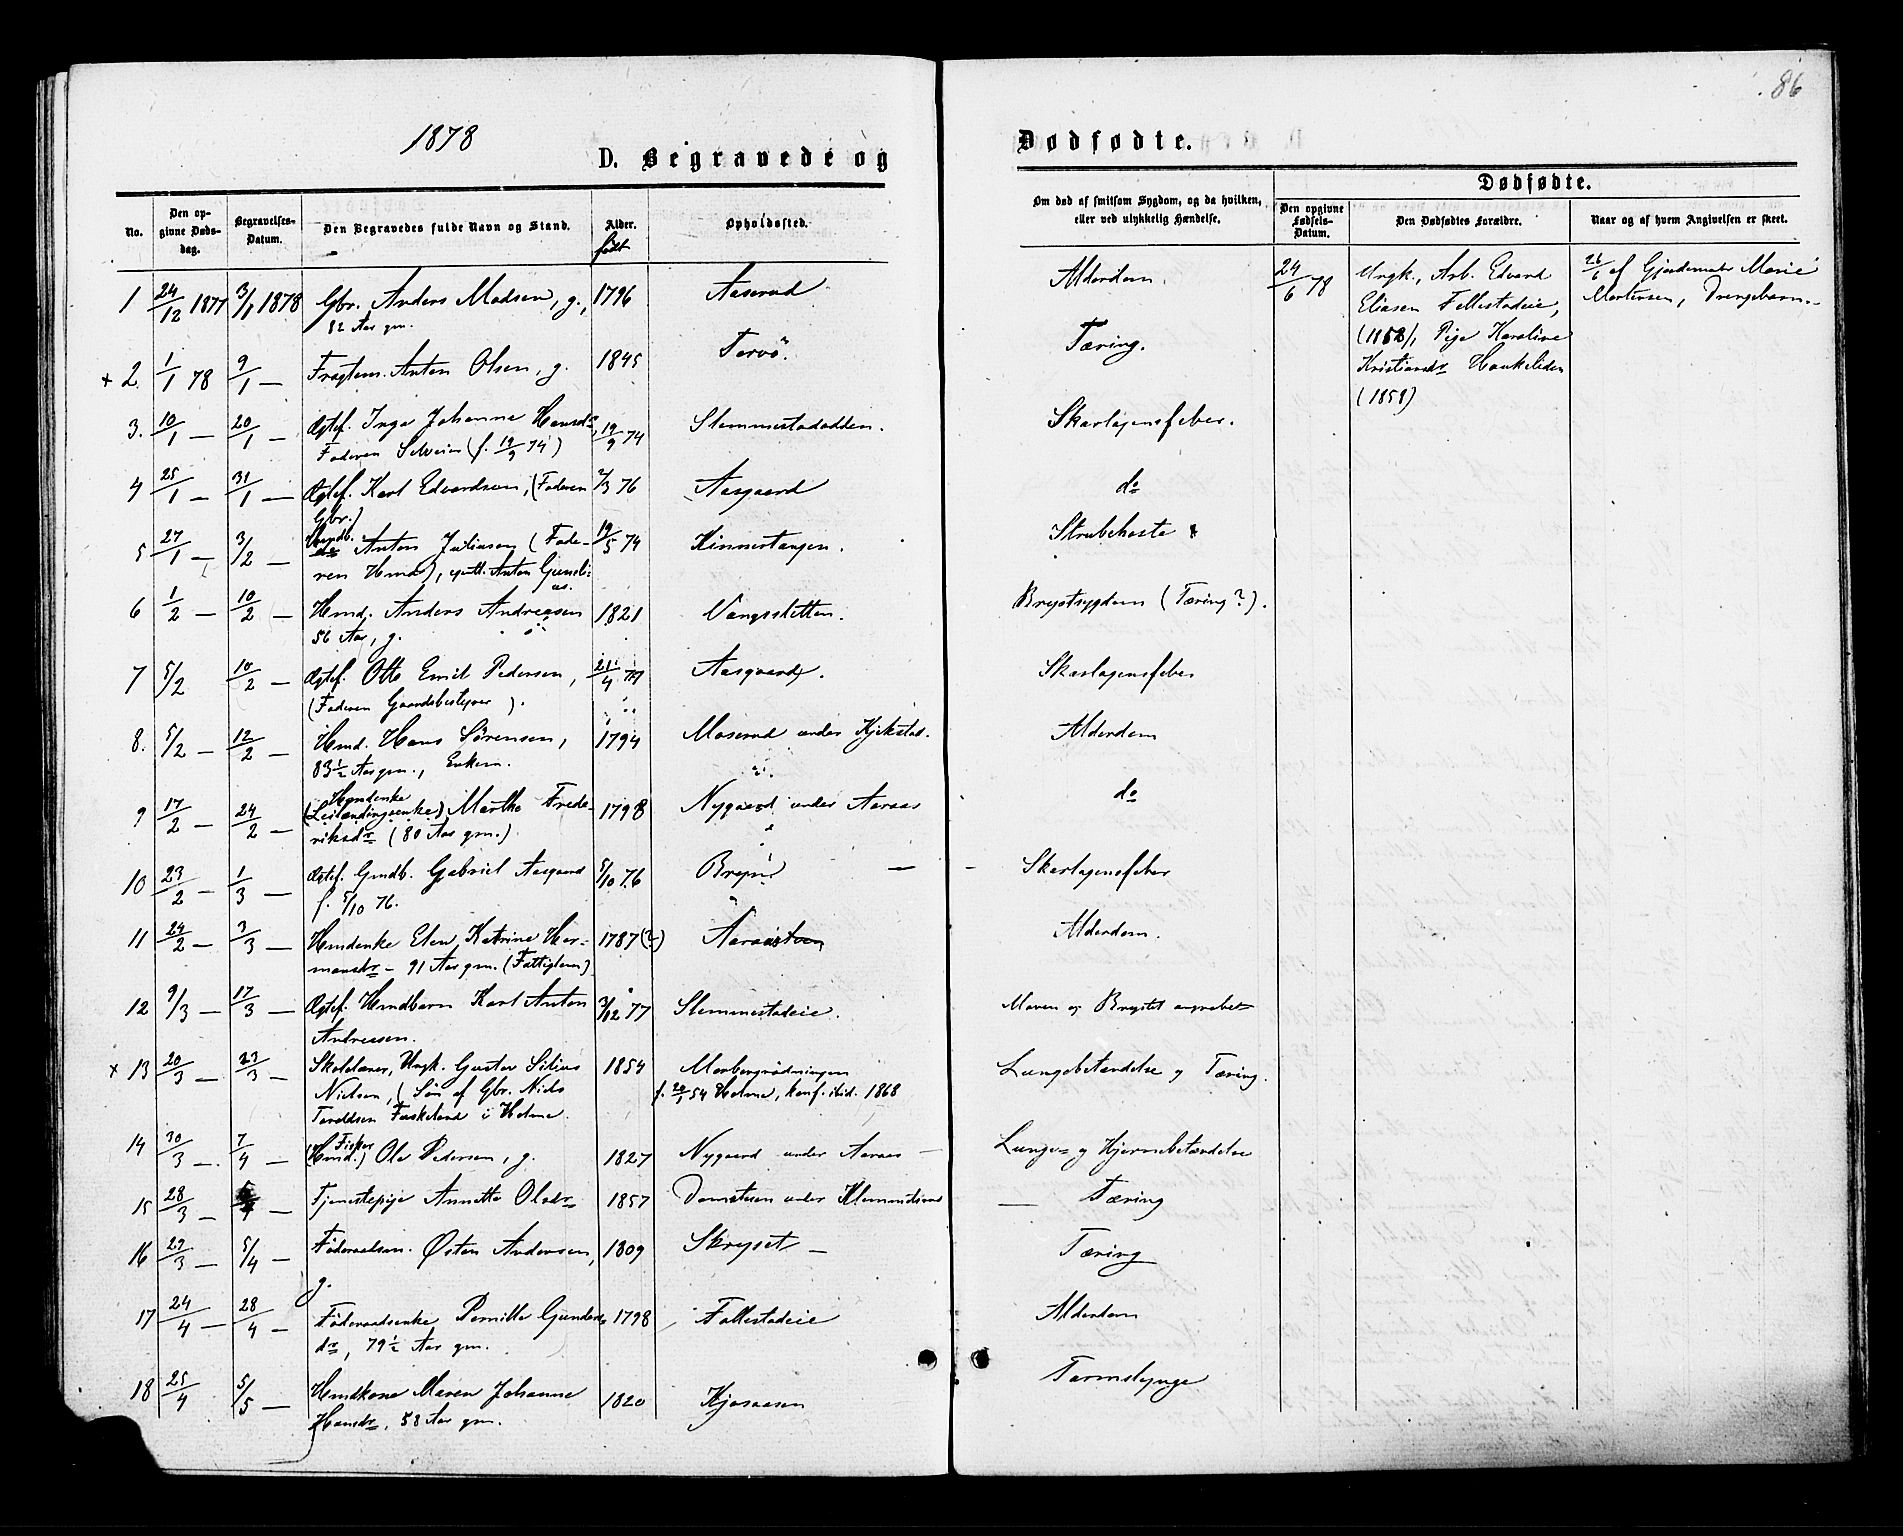 86
1878
D. Begravede og
Dødfødte.
No.
Den opgivne Dødsdag.
Begravelses-Datum.
Den Begravedes fulde Navn og Stand.
Alder.
født
Opholdssted.
Om død af smitsom Sygdom, og da hvilken, eller ved ulykkelig Hændelse.
Dødfødte.
Den opgivne Fødsels-Datum.
Den Dødfødtes Forældre.
Naar og af hvem Angivelsen er skeet.
1 24/12 1877 3/1 1878 Gbr. Anders Madsen, g., 1796 Aaserud Alderdom.
82 Aar gm.
24/6 78 Ungk., Arb. Edvard
Eliasen Follestadeie,
(1858), Pige Karoline
Kristiansdr Haukeliden
(1858)
26/6 af Gjordemoder Marie
Mortensen, Drengebarn.
+ 2. 1/1 78 9/1 — Fragtem. Anton Olsen, g. 1845 Torvö. Tæring.
3. 10/1 — 20/1 — Ægtef. Inga Johanne Hansdr 19/9 74 Slemmestadodden. Skarlagensfeber.
Faderen Selveier (f. 19/9 74)
4 25/1 — 31/1 — Ægtef. Karl Edvardsen, (Faderen 2/3 76 Aasgaard do
Gbr.)
5 27/1 — 3/2 — Hmdb. Anton Juliussen (Fade- 19/5 74 Kinnestangen. Strubehoste
ren Hmd.),
6 1/2 — 10/2 — Hmd. Anders Andreasen 1821 Vangssletten. Brystsygdom (Tæring?).
56 Aar, g.
7 5/2 10/2 — Ægtef. Otto Emil Pedersen, 21/4 77 Aasgaard. Skarlagensfeber
(Faderen Gaardsbestyrer).
8. 5/2 — 12/2 — Hmd. Hans Sörensen, 1794 Moserud under Kjekstad. Alderdom
83½ Aar gm., Enkem.
9 17/2 — 24/2 — Hmdenke
(Leilændingsenke) Marthe Frede- 1798 Nygaard under Aaraas do
riksdr (80 Aar gm.)
10 23/2 — 1/3 — Ægtef. Gmdb. Gabriel Aasgaard 5/10 76 — Skarlagensfeber
f. 5/10 76.
11 24/2 — 3/3 — Hmdenke Elen Katrine Her- 1787 (?) Alderdom.
mansdr — 91 Aar gm. (Fattiglem)
12 9/3 — 17/3 — Ægtef. Hmdbarn Karl Anton 3/12 77 Slemmestadeie. Maven og Brystet angrebet
Andreasen.
+ 13 20/3 — 23/3 — Skolelærer, Ungk. Gustav Silius 1854 Lungebetændelse og Tæring.
Nielsen, (Sön af Gbr. Niels f. 20/1 54 Holme, konf. ibid. 1868
Taraldsen Faskeland i Holme.
14 30/3 — 7/4 — Fisker
(Hmd.) Ole Pedersen, g. 1827 Nygaard under Aaraas — Lunge- og Hjernebetændelse
15 28/3 — Tjenestepige Annette Olsdr 1857 under Klemmetsrud — Tæring
16 29/3 — 5/4 — Föderaadsm. Østen Andersen, 1809 Skryset — Tæring
g.
17 24/4 — 28/4 — Föderaadsenke Pernille Gunders 1798 Follestadeie Alderdom
dr, 79½ Aar gm.
18 25/4 5/5 — Hmdkone Maren Johanne 1820 Kjosaasen Tarmslynge
Hansdr, 58 Aar gm.